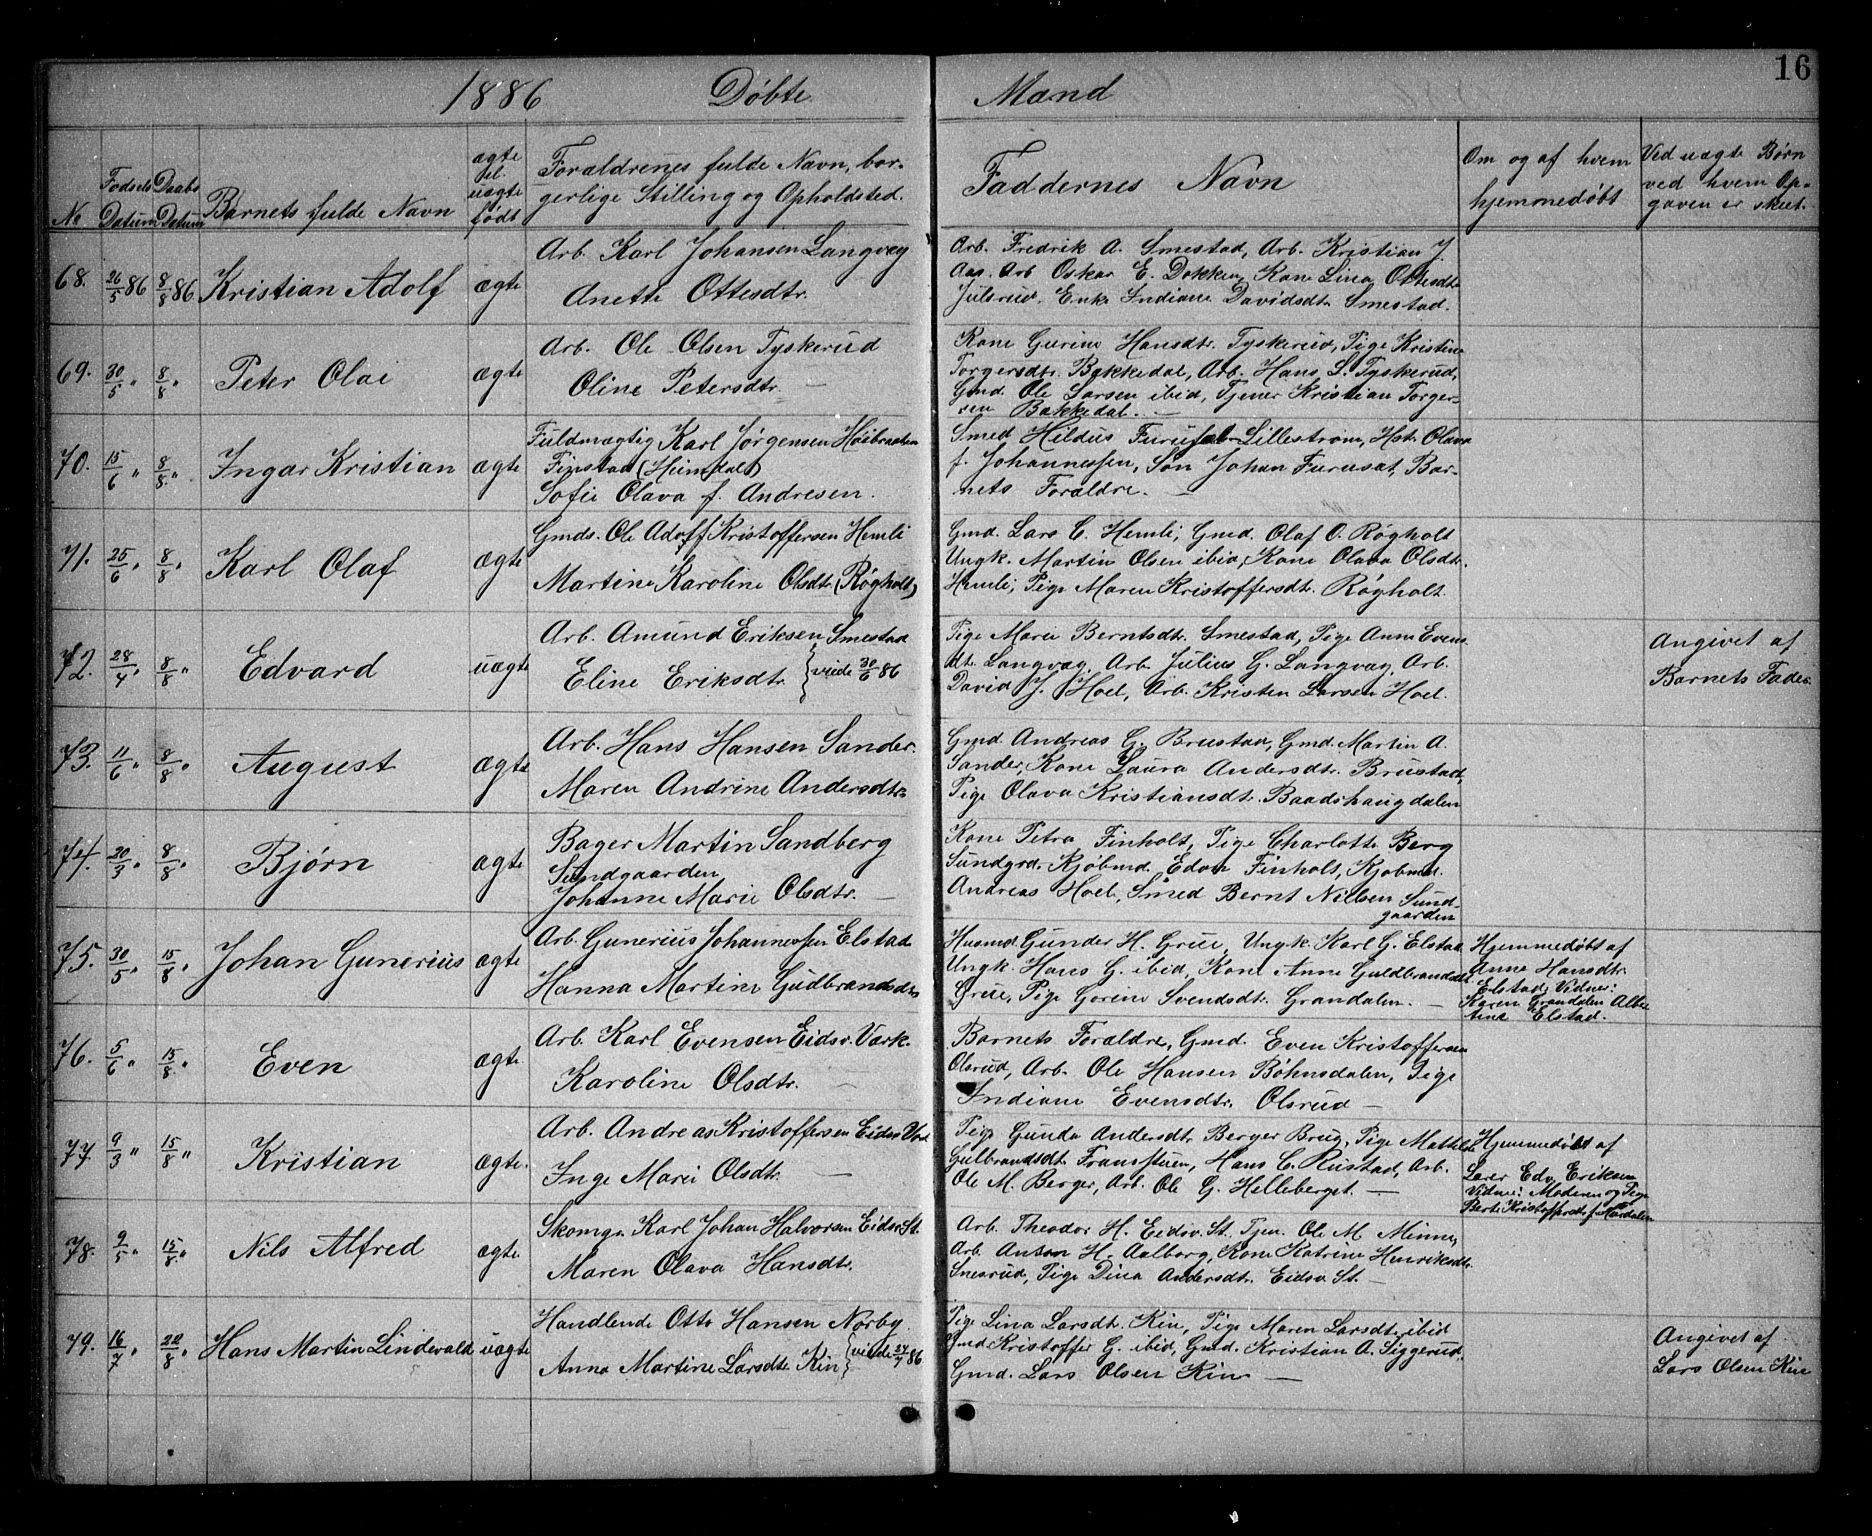 16
1886 Døbte Mænd
No
Fødsels Datum
Daabs Datum
Barnets fulde Navn
ægte el. uægte født
Forældrenes fulde Navn, bor-
gerlige Stilling og Opholdsted.
Faddernes Navn
Om og af hvem
hjemmedøbt
Ved uægte Børn
ved hvem Op-
gaven er skeet.
68. 26/5 86 8/8 86. Kristian Adolf ægte
Arb. Karl Johansen Langvæg
Anette Ottesdtr.
Arb. Fredrik A. Smestad, Arb. Kristian J.
Aas. Arb Oskar E. Dokken, Kone Lina Ottesdtr
Julsrud. Enke Indiane Davidsdtr Smestad.
69. 30/5 " 8/8 " Peter Olai ægte
Arb. Ole Olsen Tyskerud
Oline Petersdtr. —
Kone Gurine Hansdtr. Tyskerud, Pige Kristine
Torgersdtr. Bakkedal, Arb. Hans L. Tyskerud,
Gmd. Ole Larsen ibid, Tjener Kristian Torger-
sen Bakkedal. —
70. 15/6 " 8/8 " Ingar Kristian ægte
Fuldmægtig Karl Jørgensen Høibraaten
Finstad (Heimdal)
Sofie Olava f. Andresen.
Smed Hildus Furusat Lillestrøm, Hstr Olava
f. Johannessen, Søn Johan Furusat, Bar-
nets Forældre. —
71. 25/6 " 8/8 " Karl Olaf ægte
Gmds. Ole Adolf Kristoffersen Hemli
Martine Karoline Olsdtr (Røgholt)
Gmd. Lars C. Hemli, Gmd. Olaf O. Røgholt
Ungk. Martin Olsen ibid, Kone Olava Olsdtr.
Hemli, Pige Maren Kristoffersdtr. Røgholt.
72. 28/4 " 8/8 " Edvard uægte
Arb. Amund Eriksen Smestad
Eline Eriksdtr. } viede 30/6 86
Pige Marie Berntsdtr. Smestad, Pige Anne Evens-
dtr Langvæg, Arb. Julius G. Langvæg, Arb.
David J. Hoel, Arb. Kristen Larsen Hoel.
Angivet af
Barnets Fader
73. 11/6 " 8/8 " August ægte
Arb. Hans Hansen Sander.
Maren Andrine Andersdtr.
Gmd. Andreas G. Brustad, Gmd. Martin A.
Sander, Kone Laura Andersdtr. Brustad,
Pige Olava Kristiansdtr. Baadshaugdalen
74. 20/3 " 8/8 " Bjørn ægte
Bager Martin Sandberg
Sundgaarden
Johanne Marie Olsdtr. —
Kone Petra Finholt, Pige Charlotte Berg
Sundgrd. Kjøbmd. Edon Finholt, Kjøbmd.
Andreas Hoel, Smed Bernt Nilsen Sund-
gaarden
75. 30/5 " 15/8 " Johan Gunerius ægte
Arb. Gunerius Johannessen Elstad
Hanna Martine Gudbrandsdtr
Husmd. Gunder H. Grue, Ungk. Karl G. Elstad
Ungk. Hans G. ibid, Kone Anne Guldbrandsdtr.
Grue, Pige Gorine Svendsdtr. Grandalen. —
Hjemmedøbt af
Anne Hansdtr.
Elstad; Vidner:
Karen Grandalen Albe
tine Elstad.
76. 5/6 " 15/8 " Even ægte
Arb. Karl Evensen Eidsv. Værk.
Karoline Olsdtr. —
Barnets Forældre, Gmd. Even Kristoffersen
Olsrud, Arb. Ole Hansen Bøhnsdalen, Pige
Indiane Evensdtr. Olsrud —
77. 9/3 " 15/8 " Kristian ægte.
Arb. Andreas Kristoffersen Eidsv Værk
Inge Marie Olsdtr. —
Pige Gunda Andersdtr. Berger Brug, Pige Mathilde
Gulbrandsdtr. Fransstuen, Hans C. Rustad, Arb.
Ole M. Berger, Arb. Ole G. Helleberget. —
Hjemmedøbt af
Lærer Edv. Eriksen
Vidner: Moderen og Pige
78. 9/5 " 15/8 " Nils Alfred ægte
Skomgr Karl Johan Halvorsen Eidsv. St.
Maren Olava Hansdtr.
Arb. Theodor H. Eidsv. St, Tjen. Ole M. Minne,
Arb. Anton H. Aalborg, Kone Katrine Henriksdtr.
Snesrud, Pige Dina Andersdtr. Eidsv. St. —
79. 16/7 " 22/8 " Hans Martin Lindevald uægte
Handlende Otto Hansen Norby.
Anna Martine Larsdtr Kin } viede 27/7 86
Pige Lina Larsdtr. Kin, Pige Maren Larsdtr. ibid
Gmd Kristoffer G. ibid, Gmd. Kristian A. Siggerud,
Gmd. Lars Olsen Kin —
Angivet af
Lars Olsen Kin